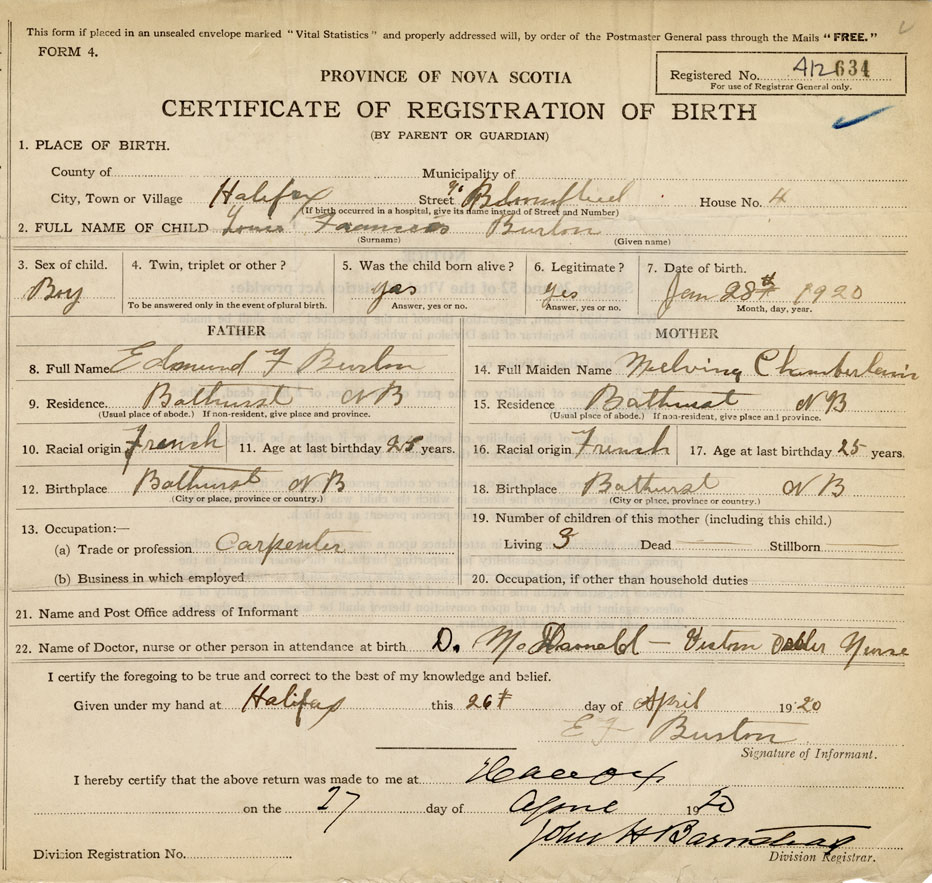 This form if placed in an unsealed envelope marked "Vital Statistics" and properly addressed will, by order of the Postmaster General pass through the Mails "FREE."
FORM 4.
PROVINCE OF NOVA SCOTIA
Registered No. 412634
For use of Registrar General only.
CERTIFICATE OF REGISTRATION OF BIRTH
(BY PARENT OR GUARDIAN)
1. PLACE OF BIRTH.
County of Municipality of
City, Town or Village Halifax Street Bloomfield House No. 4
(If birth occurred in a hospital, give its name instead of Street and Number)
2. FULL NAME OF CHILD Louis Francis Burton
(Surname) (Given name)
3. Sex of child. 4. Twin, triplet or other? 5. Was the child born alive? 6. Legitimate? 7. Date of birth.
Boy yas yes Jan 28th 1920
To be answered only in the event of plural birth. Answer, yes or no. Answer, yes or no. Month, day, year.
FATHER MOTHER
8. Full Name Edmund F Burton 14. Full Maiden Name Chamberlain
9. Residence. Bathurst NB 15. Residence Bathurst NB
(Usual place of abode.) If non-resident, give place and province. (Usual place of abode.) If non-resident, give place and province.
10. Racial origin French 11. Age at last birthday 25 years. 16. Racial origin French 17. Age at last birthday 25 years.
12. Birthplace Bathurst NB 18. Birthplace Bathurst NB
(City or place, province or country.) (City or place, province or country.)
13. Occupation:— 19. Number of children of this mother (including this child.)
(a) Trade or profession Carpenter Living 3 Dead — Stillborn —
(b) Business in which employed 20. Occupation, if other than household duties
21. Name and Post Office address of Informant
22. Name of Doctor, nurse or other person in attendance at birth D. McDonald — Nurse
I certify the foregoing to be true and correct to the best of my knowledge and belief.
Given under my hand at Halifax this 26t day of April 1920
E F Burton
Signature of Informant.
I hereby certify that the above return was made to me at Halifax
on the 27 day of April 1920
John H Barnstead
Division Registration No. Division Registrar.